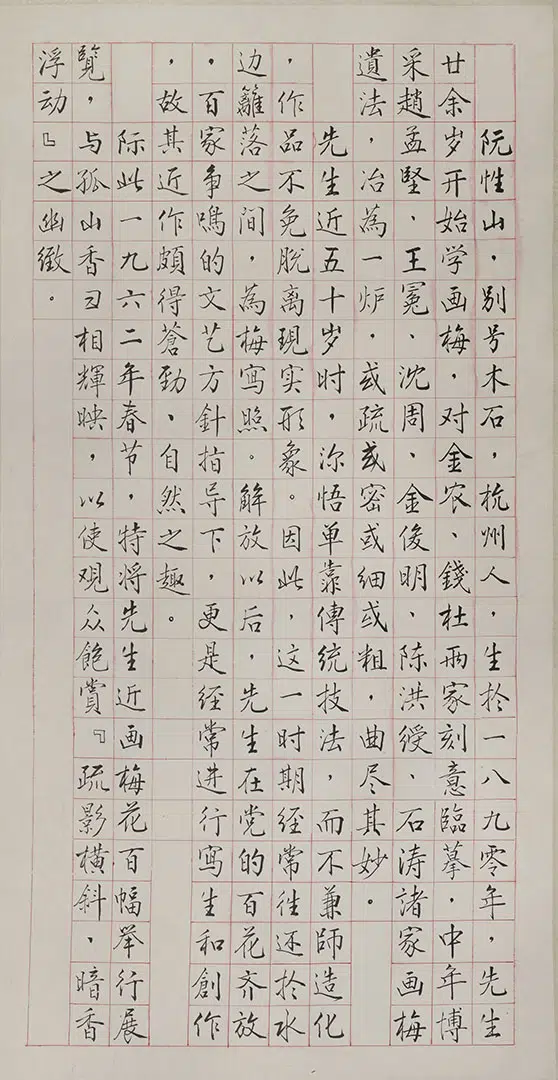 阮性山，别号木石，杭州人，生於一八九零年，先生
廿余岁开始学画梅，对金农、錢杜兩家刻意臨摹，中年博
采趙孟堅、王冕、沈周、金俊明、陈洪綬、石涛諸家画梅
遺法，冶為一炉，或疏或密或细或粗，曲尽其妙。
先生近五十岁时，深悟单靠傳统技法，而不兼師造化
，作品不免脱离現实形象。因此，这一时期经常往还於水
边籬落之间，為梅寫照。解放以后，先生在党的百花齐放
，百家争鳴的文艺方針指导下，更是经常进行寫生和創作
，故其近作頗得蒼劲、自然之趣。
际此一九六二年春节，特将先生近画梅花百幅举行展
覽，与孤山香雪相輝映，以使观众飽赏『疏影横斜，暗香
浮动』之幽緻。